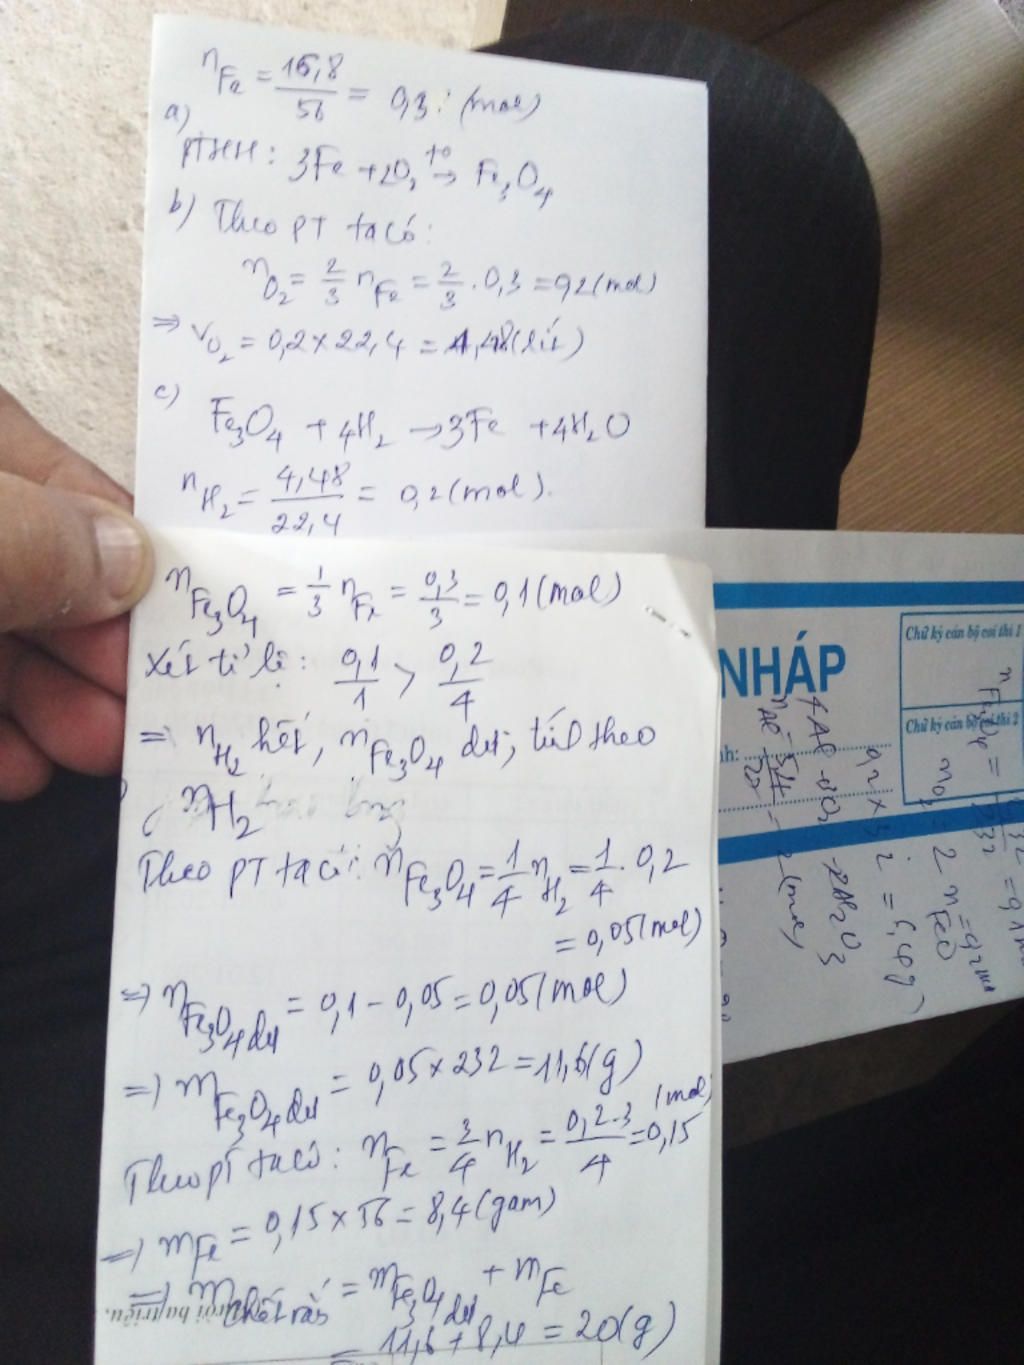 nFe = 16,8/56 = 0,3 (mol)
a)
PTHH: 3Fe + 2O₂ →(t°) Fe₃O₄
b) Theo PT ta có:
nO₂ = 2/3 nFe = 2/3 . 0,3 = 0,2 (mol)
=> VO₂ = 0,2 x 22,4 = 4,48 (lít)
c)
Fe₃O₄ + 4H₂ → 3Fe + 4H₂O
nH₂ = 4,48/22,4 = 0,2 (mol).
nFe₃O₄ = 1/3 nFe = 0,3/3 = 0,1 (mol)
Xét tỉ lệ: 0,1/1 > 0,2/4
=> nH₂ hết, nFe₃O₄ dư, tính theo
nH₂
Theo PT ta có: nFe₃O₄ = 1/4 nH₂ = 1/4 . 0,2
= 0,05 (mol)
=> nFe₃O₄ dư = 0,1 - 0,05 = 0,05 (mol)
=> mFe₃O₄ dư = 0,05 x 232 = 11,6 (g)
Theo PT ta có: nFe = 3/4 nH₂ = 0,2.3/4 = 0,15 (mol)
=> mFe = 0,15 x 56 = 8,4 (gam)
=> m chất rắn = mFe₃O₄ dư + mFe
= 11,6 + 8,4 = 20 (g)
NHÁP
Chữ ký cán bộ coi thi 1
Chữ ký cán bộ coi thi 2